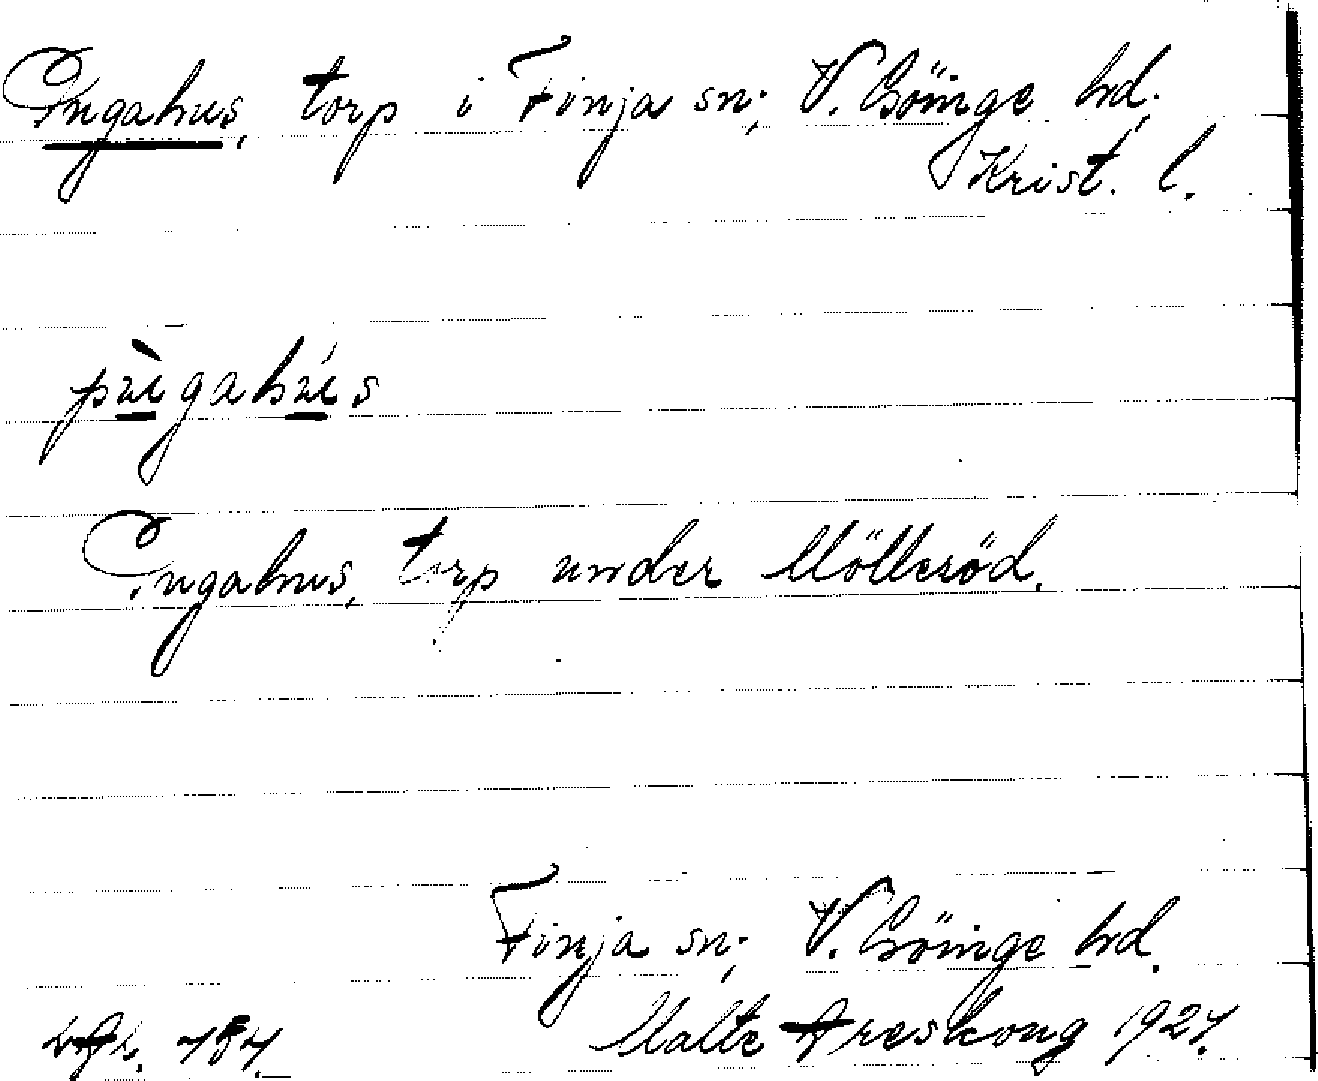 Pugahus, torp i Finja sn; V. Göinge hd,
Krist. l.
pùgahús
Pugahus, torp under Mölleröd.
Finja sn; V. Göinge hd.
Malte Areskoug 1927.